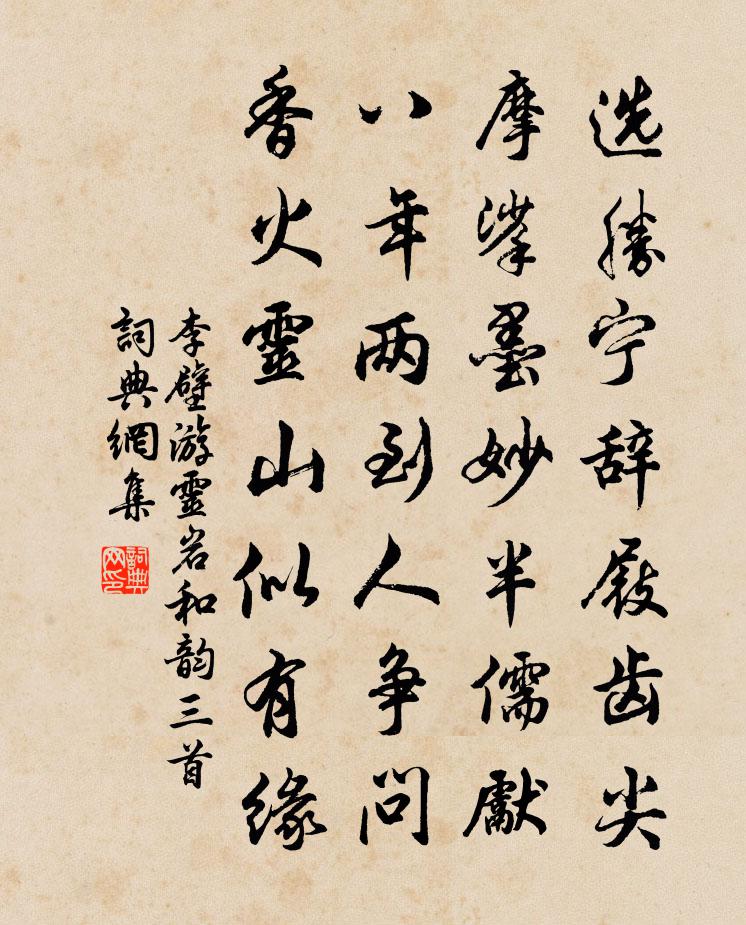 选勝宁辞屐齿尖
摩挲墨妙半儒獻
八年两到人争问
香火靈山似有缘
李壁游靈岩和韵三首
詞典網集
詞典网印